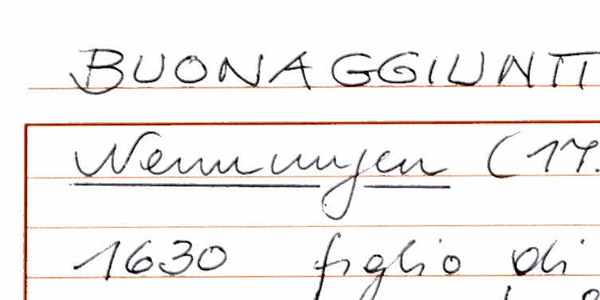 BUONAGGIUNTI
Nennungen (17.
1630 figlio di